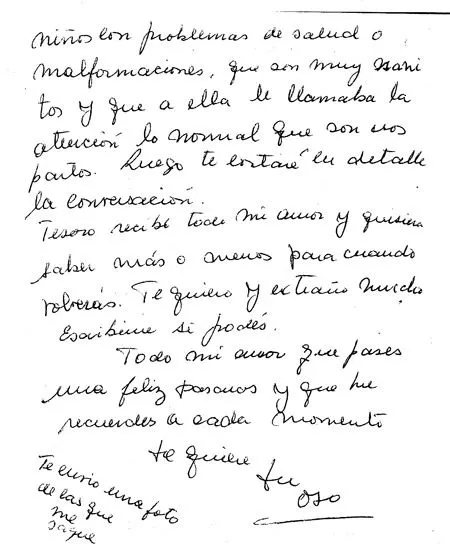 niños con problemas de salud o
malformaciones, que son muy sani
tos y que a ella le llamaba la
atención lo normal que son los
partos. Luego te contaré en detalle
la conversación.
Tesoro recibí todo mi amor y quisiera
saber más o menos para cuando
volverás. Te quiero y extraño mucho
Escribime si podés.
Todo mi amor que pases
una feliz pascuas y que me
recuerdes a cada momento
te quiere tu
OSO
Te envío una foto
de las que
me
saqué